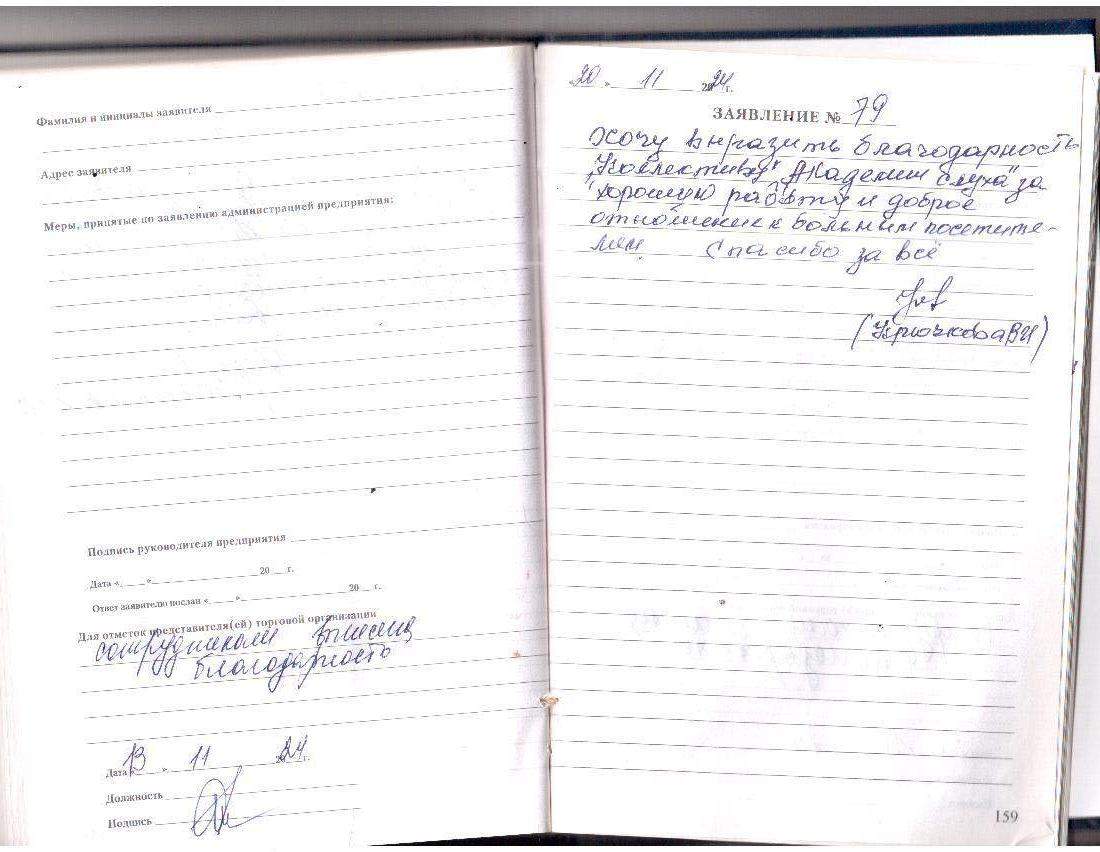 Фамилия и инициалы заявителя
Адрес заявителя
Меры, принятые по заявлению администрацией предприятия:
Подпись руководителя предприятия
Дата « » 20 г.
Ответ заявителю послан « » 20 г.
Для отметок представителя(ей) торговой организации
сотрудникам вынесена
благодарность
Дата « 13 » 11 2024 г.
Должность
Подпись
20 » 11 2024 г.
ЗАЯВЛЕНИЕ № 79
Хочу выразить благодарность
"Коллективу" Академии слуха" за
"хорошую работу и доброе
отношение к больным посетите-
лям. Спасибо за всё
(Крючкова В И)
159